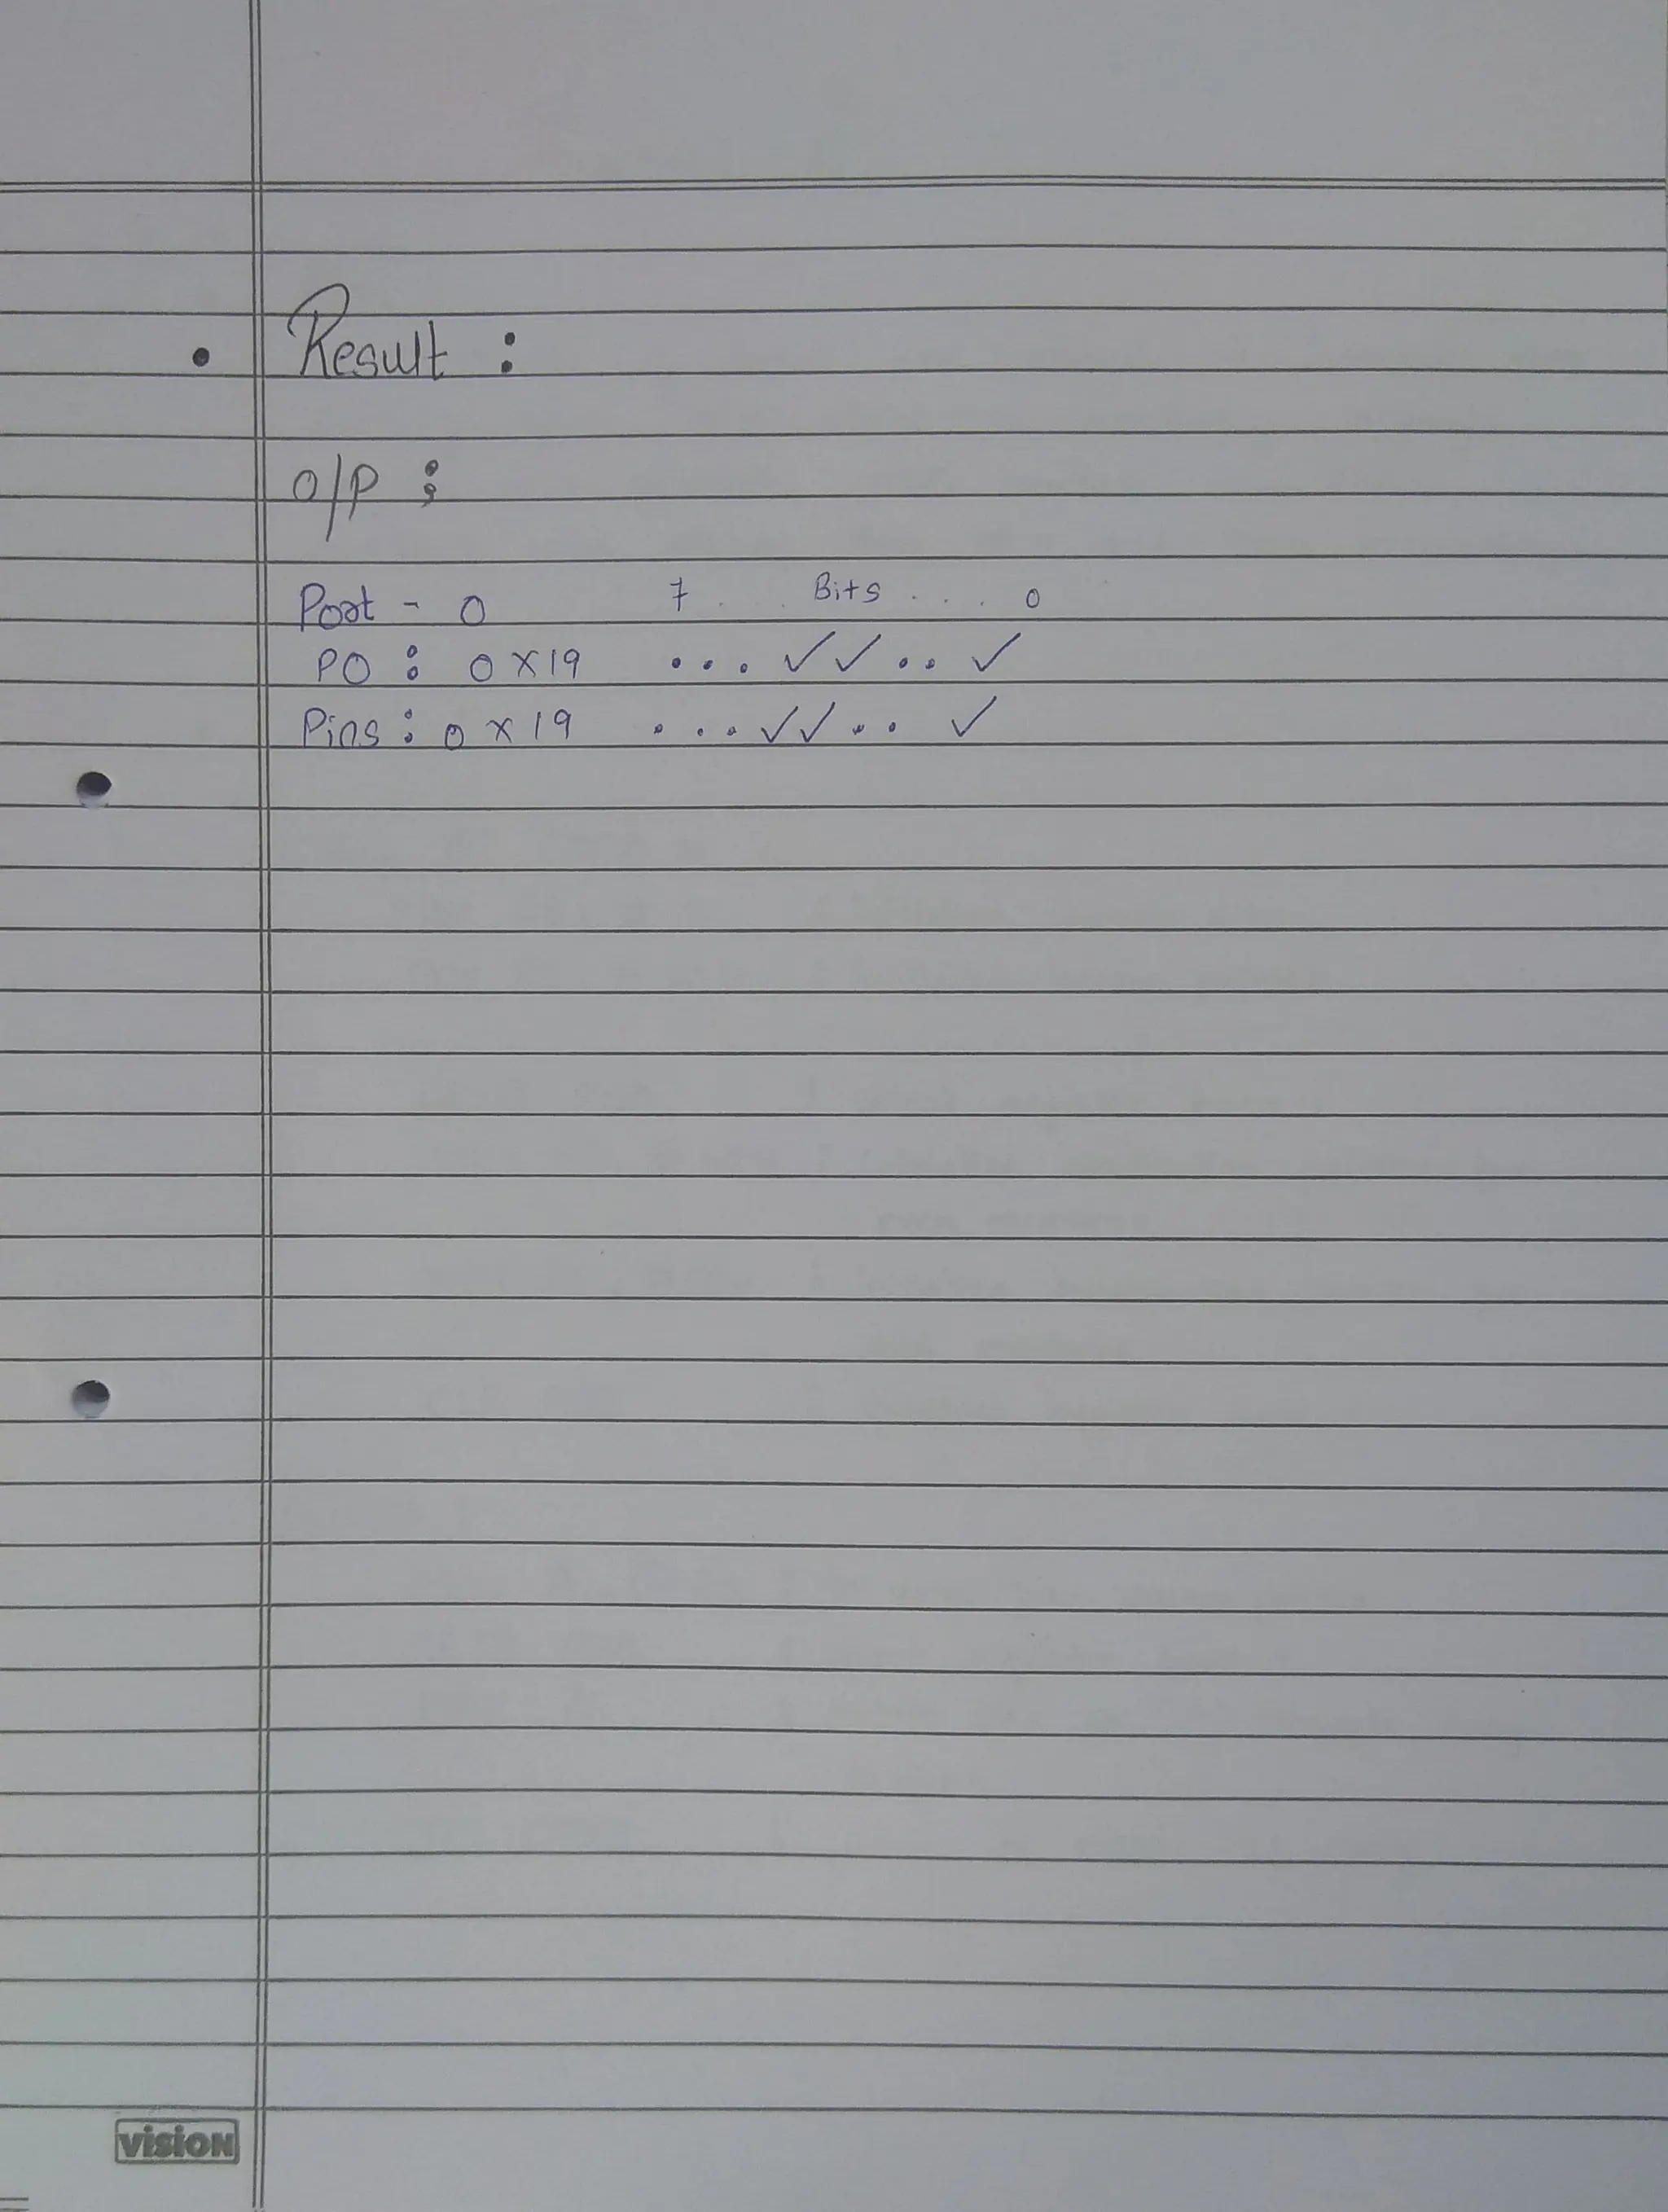 • Result :
O/P :
Port - 0 7 . . . Bits . . . 0
P0 : 0x19 . . . ✓ ✓ . . ✓
Pins : 0x19 . . . ✓ ✓ . . ✓
vision